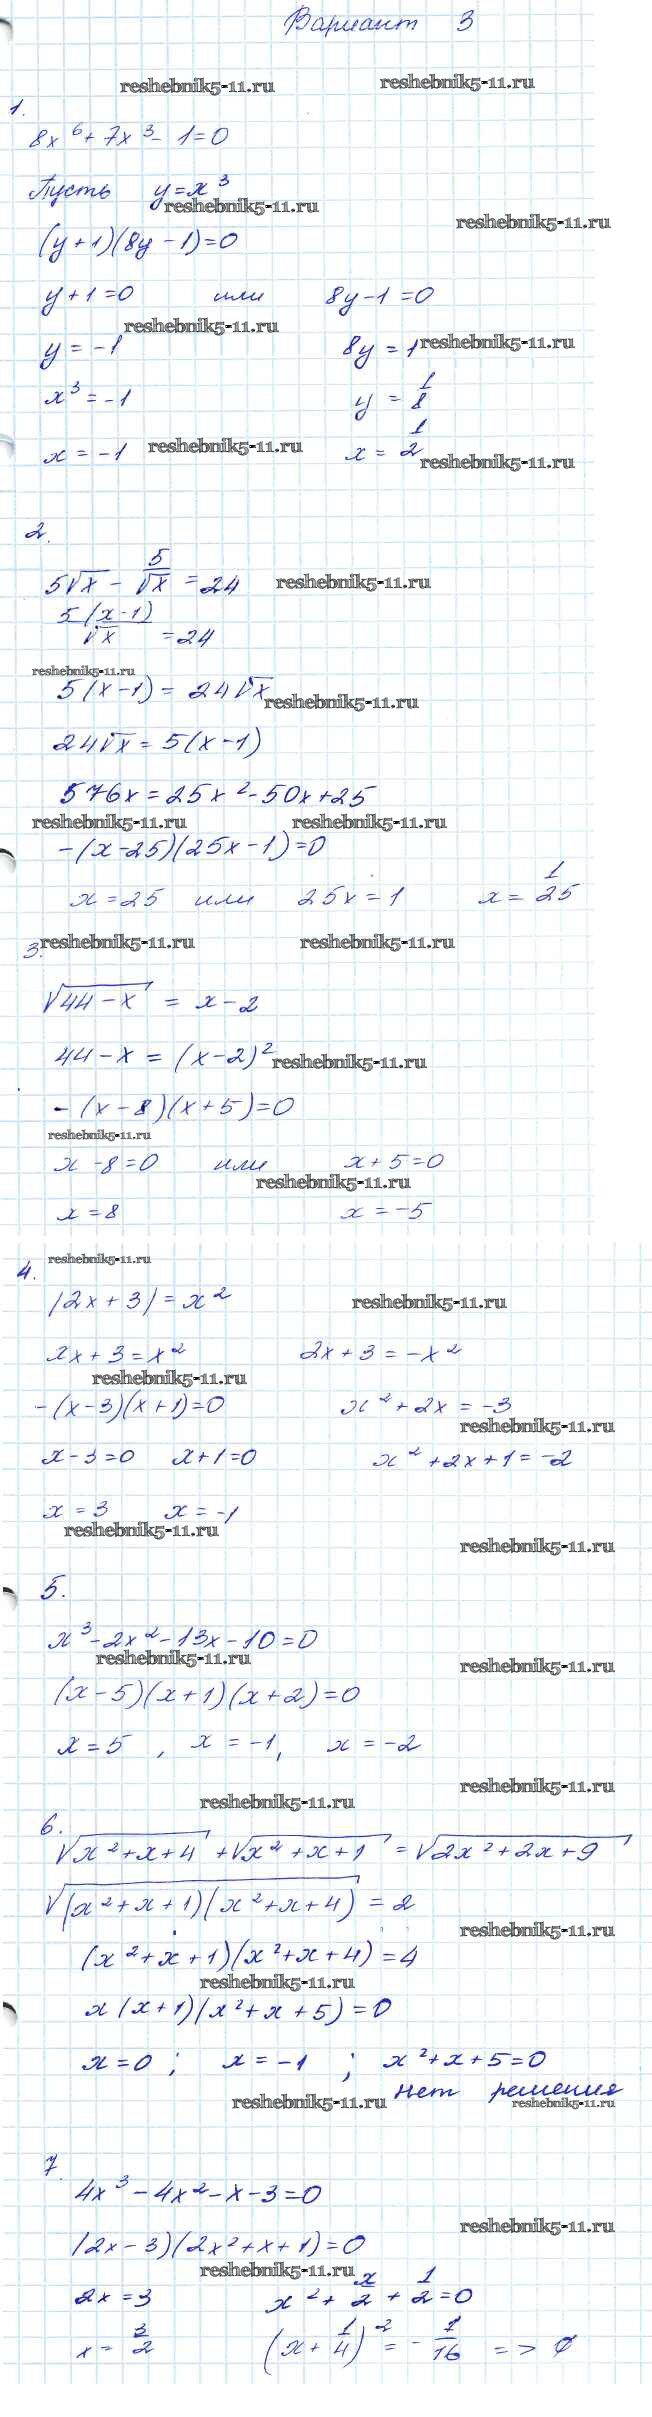 Вариант 3
reshebnik5-11.ru reshebnik5-11.ru
1.
8x⁶ + 7x³ - 1 = 0
Пусть y = x³
reshebnik5-11.ru
reshebnik5-11.ru
(y + 1)(8y - 1) = 0
y + 1 = 0 или 8y - 1 = 0
reshebnik5-11.ru
y = -1 8y = 1 reshebnik5-11.ru
x³ = -1 y = 1/8
x = -1 reshebnik5-11.ru x = 1/2 reshebnik5-11.ru
2.
5√x - 5/√x = 24 reshebnik5-11.ru
5(x-1)/√x = 24
reshebnik5-11.ru
5(x-1) = 24√x reshebnik5-11.ru
24√x = 5(x-1)
576x = 25x² - 50x + 25
reshebnik5-11.ru reshebnik5-11.ru
-(x-25)(25x-1) = 0
x = 25 или 25x = 1 x = 1/25
3. reshebnik5-11.ru reshebnik5-11.ru
√(44-x) = x - 2
44 - x = (x-2)² reshebnik5-11.ru
-(x-8)(x+5) = 0
reshebnik5-11.ru
x - 8 = 0 или x + 5 = 0
reshebnik5-11.ru
x = 8 x = -5
reshebnik5-11.ru
4.
|2x + 3| = x² reshebnik5-11.ru
2x + 3 = x² 2x + 3 = -x²
reshebnik5-11.ru
-(x-3)(x+1) = 0 x² + 2x = -3
reshebnik5-11.ru
x - 3 = 0 x + 1 = 0 x² + 2x + 1 = -2
x = 3 x = -1
reshebnik5-11.ru reshebnik5-11.ru
5.
x³ - 2x² - 13x - 10 = 0
reshebnik5-11.ru reshebnik5-11.ru
(x-5)(x+1)(x+2) = 0
x = 5, x = -1, x = -2
reshebnik5-11.ru reshebnik5-11.ru
6.
√(x²+x+4) + √(x²+x+1) = √(2x²+2x+9)
√((x²+x+1)(x²+x+4)) = 2
reshebnik5-11.ru
(x²+x+1)(x²+x+4) = 4
reshebnik5-11.ru
x(x+1)(x²+x+5) = 0
x = 0; x = -1; x²+x+5 = 0
нет решения
reshebnik5-11.ru reshebnik5-11.ru
7.
4x³ - 4x² - x - 3 = 0
reshebnik5-11.ru
(2x-3)(2x²+x+1) = 0
reshebnik5-11.ru
2x = 3 x² + x/2 + 1/2 = 0
x = 3/2 (x + 1/4)² = -1/16 => ∅